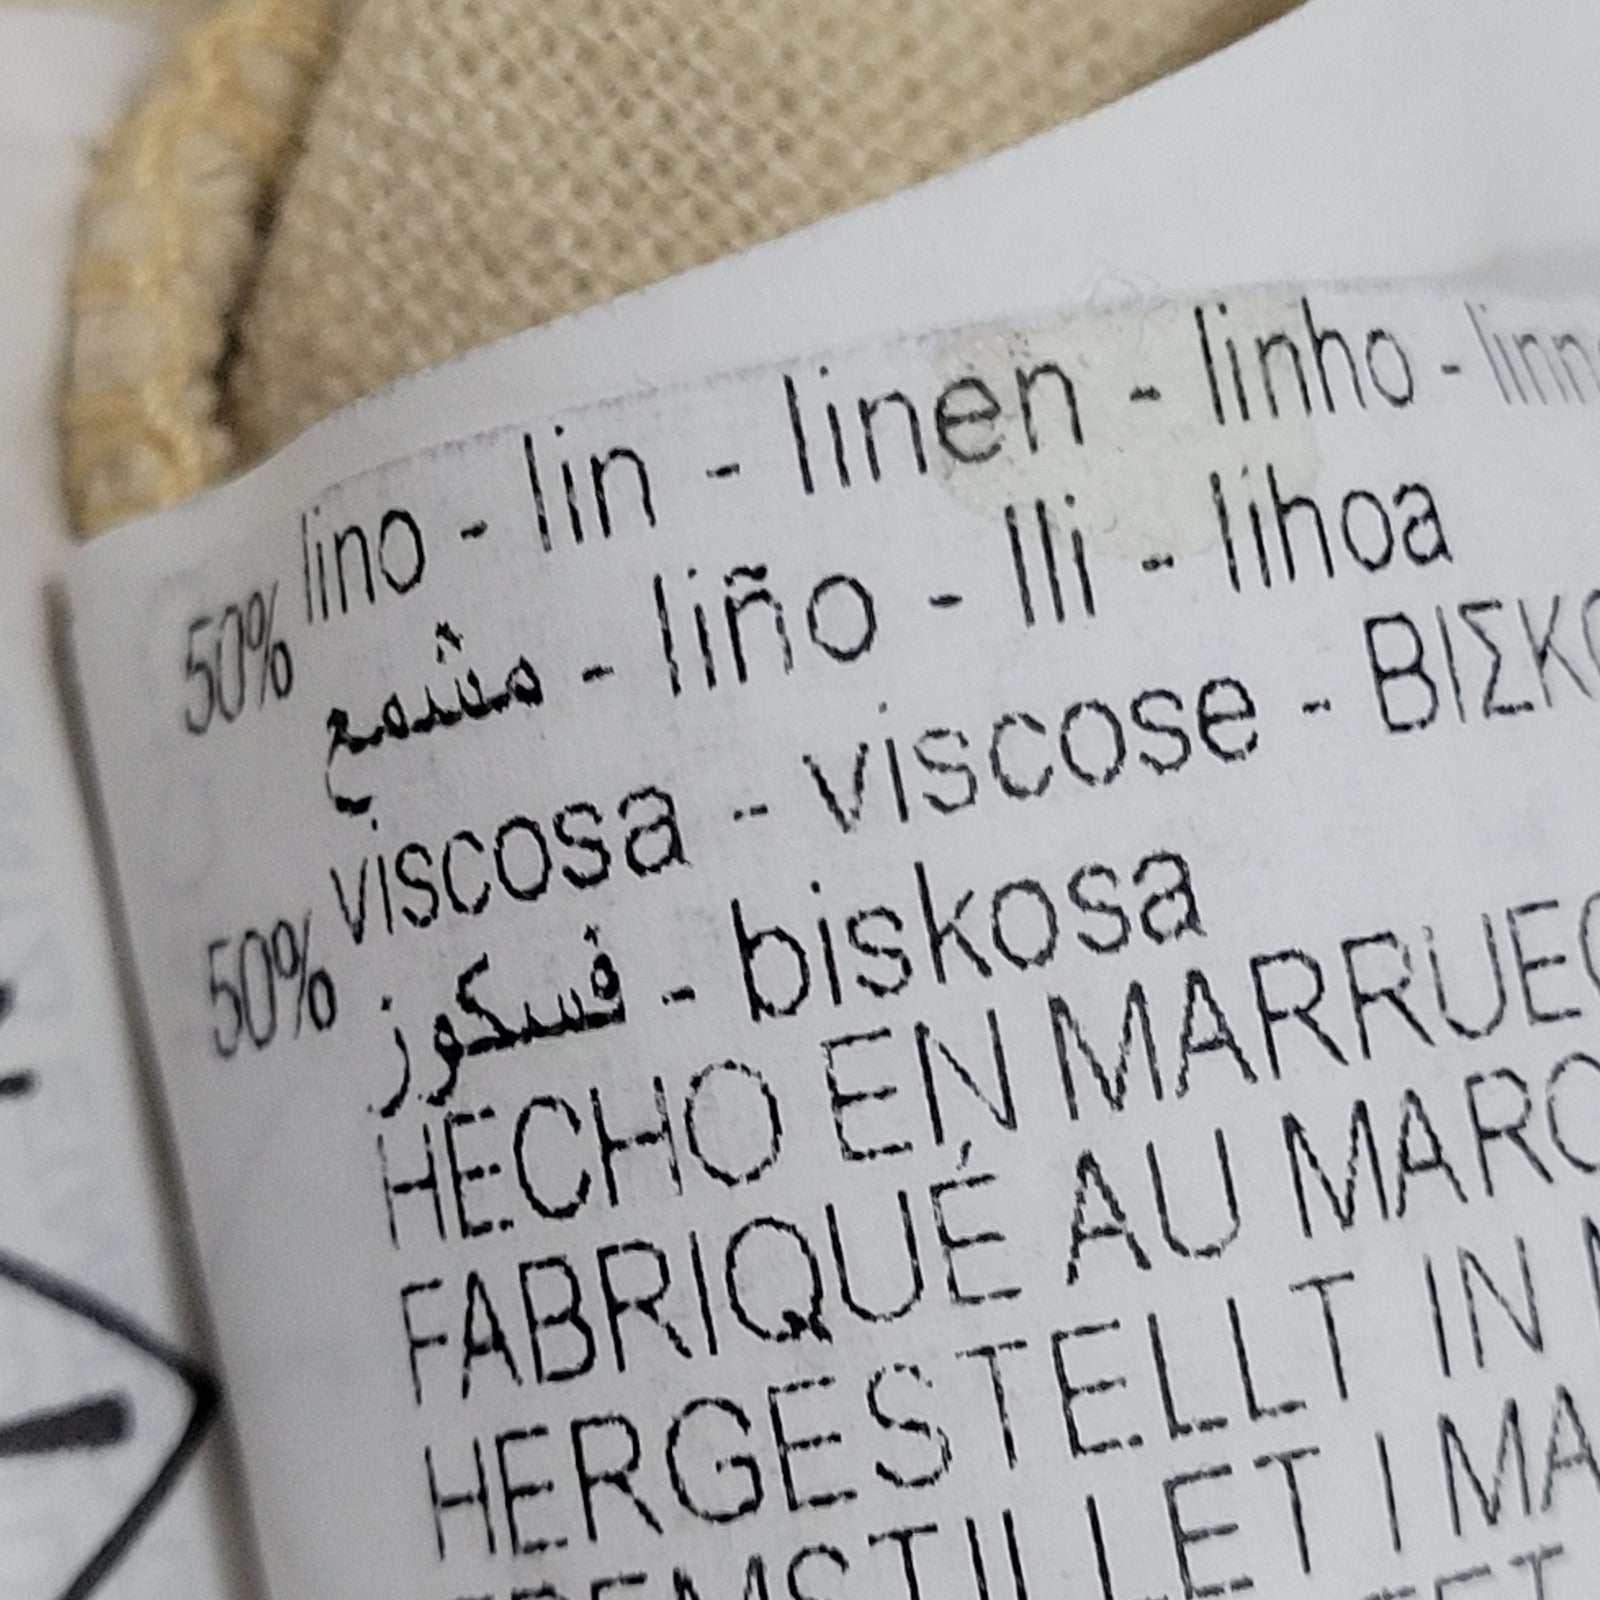 50% lino - lin - linen - linho - linn
مشمع - liño - lli - lihoa
50% viscosa - viscose - ΒΙΣΚΟ
فسكوز - biskosa
HECHO EN MARRUEC
FABRIQUÉ AU MARO
HERGESTELLT IN
FREMSTILLET I MA